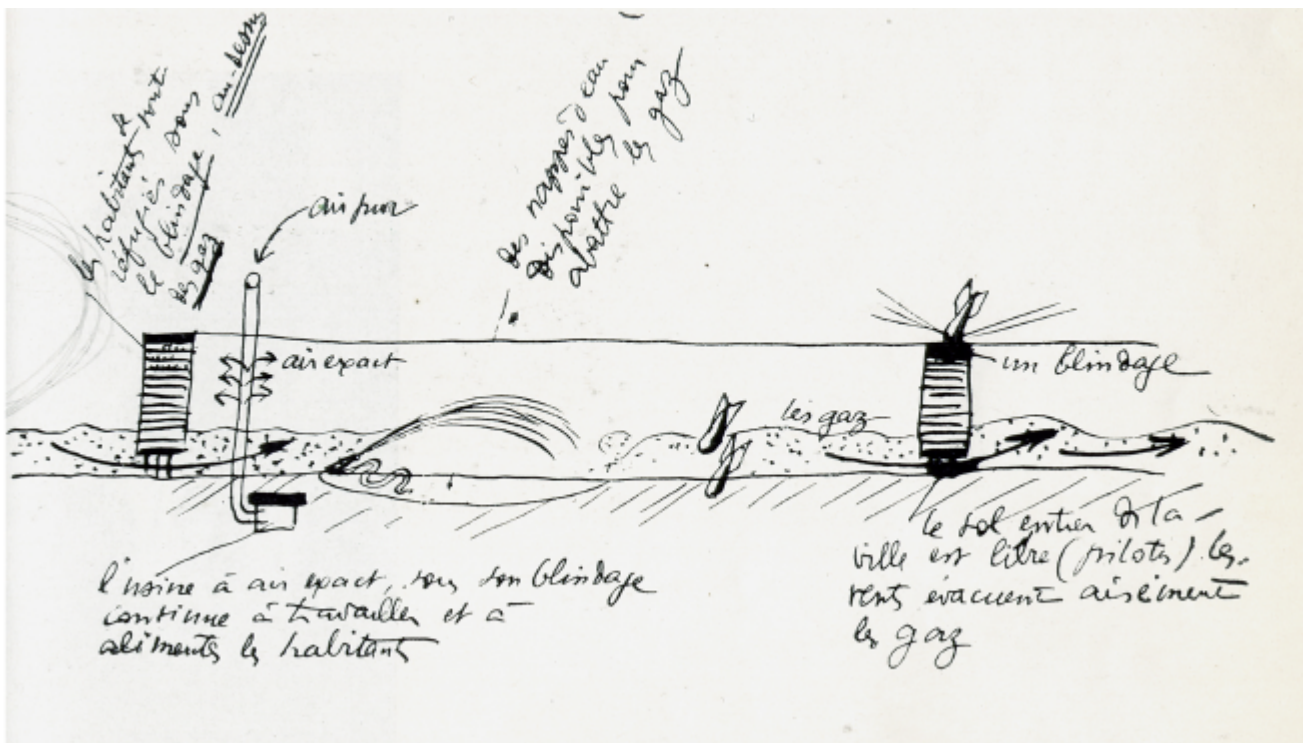 les habitants se sont
réfugiés sous
le blindage, au-dessus
des gaz
air pur
des nappes d'eau
disponibles pour
abattre les gaz
air exact
un blindage
les gaz
l'usine à air exact, sous son blindage
continue à travailler et à
alimenter les habitants
le sol entier de la
ville est libre (pilotis) les
vents évacuent aisément
les gaz